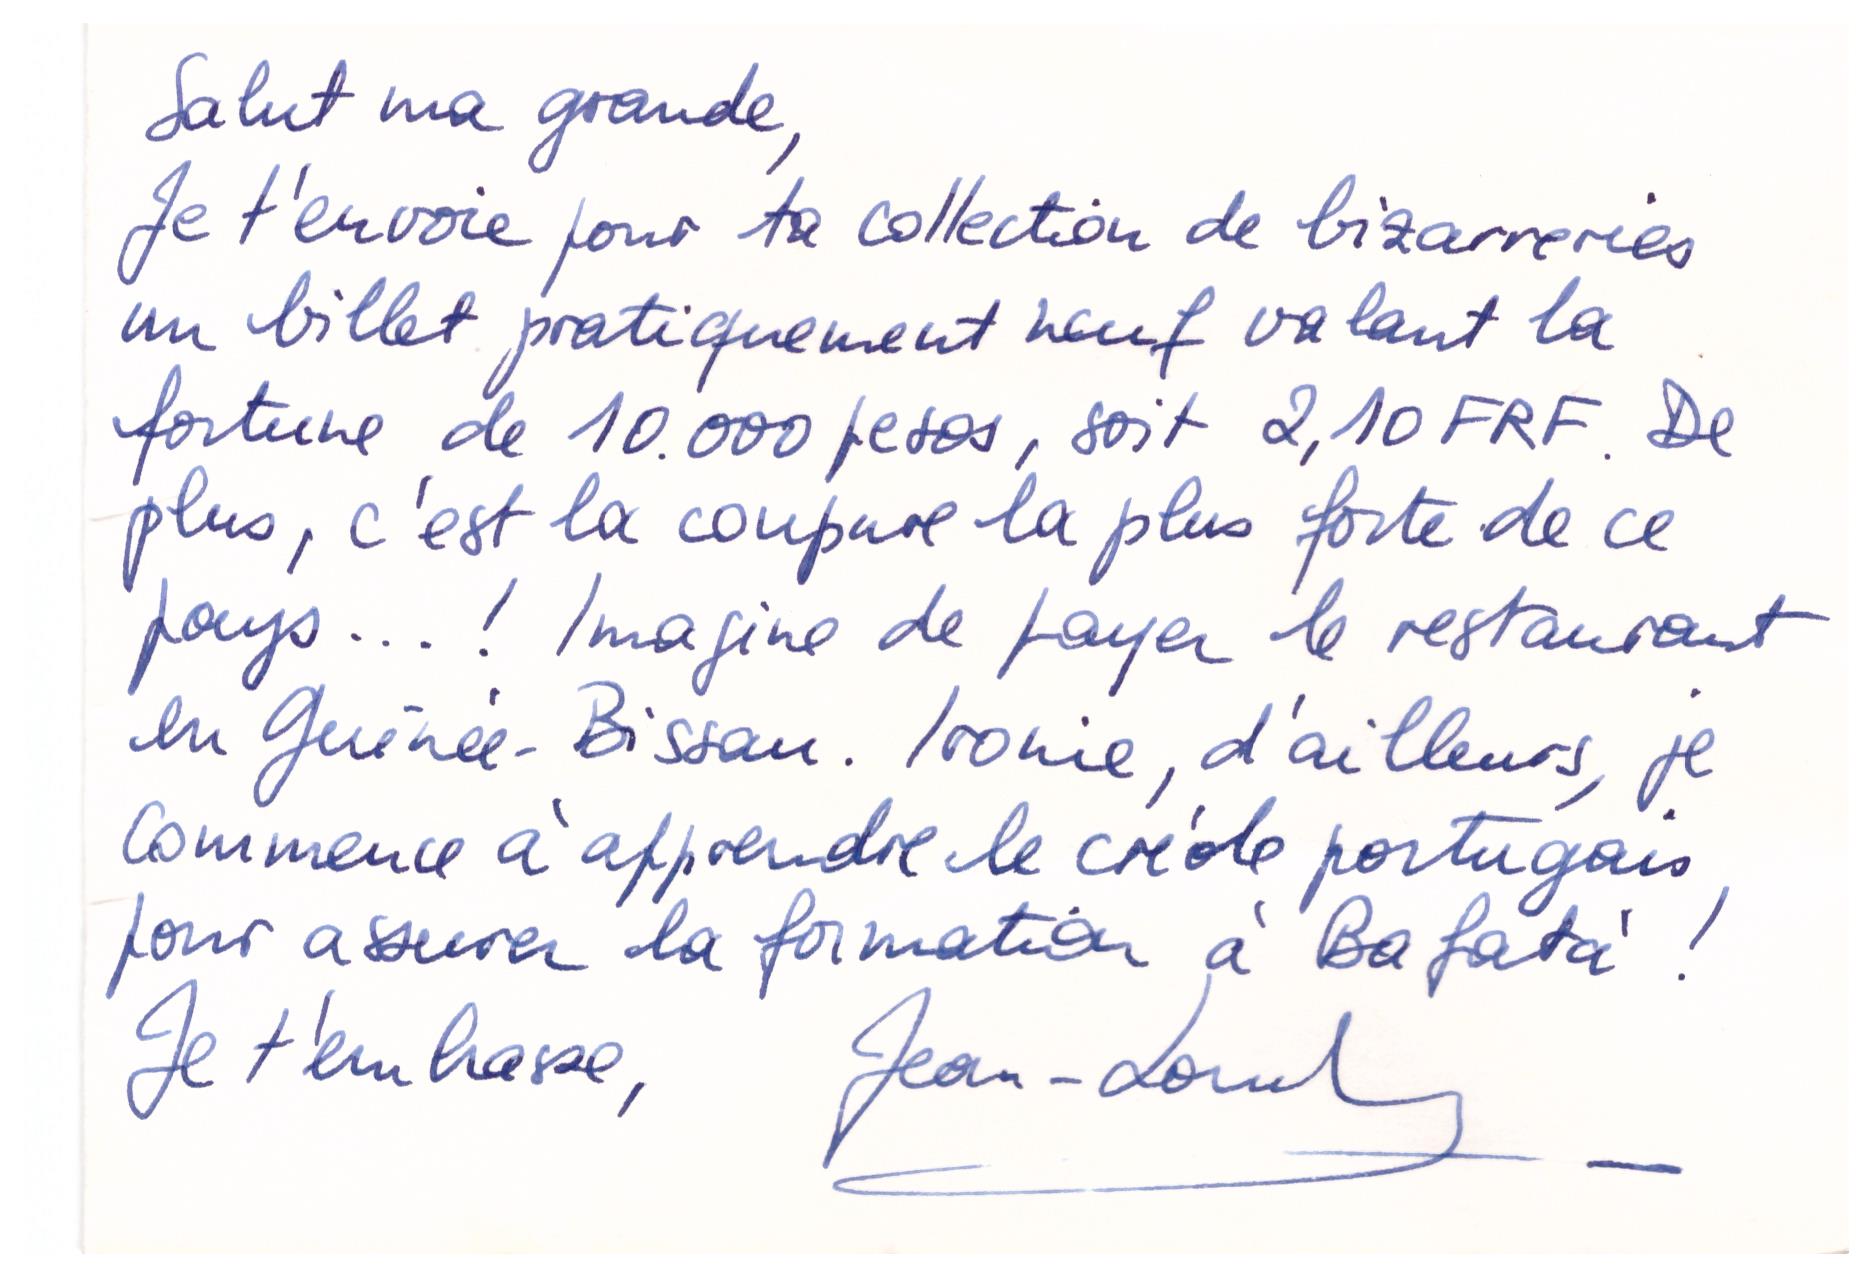 Salut ma grande,
Je t'envoie pour ta collection de bizarreries
un billet pratiquement neuf valant la
fortune de 10.000 pesos, soit 2,10 FRF. De
plus, c'est la coupure la plus forte de ce
pays...! Imagine de payer le restaurant
en Guinée-Bissau. Ironie, d'ailleurs, je
commence à apprendre le créole portugais,
pour assurer la formation à Bafatá !
Je t'embrasse, Jean-Loup